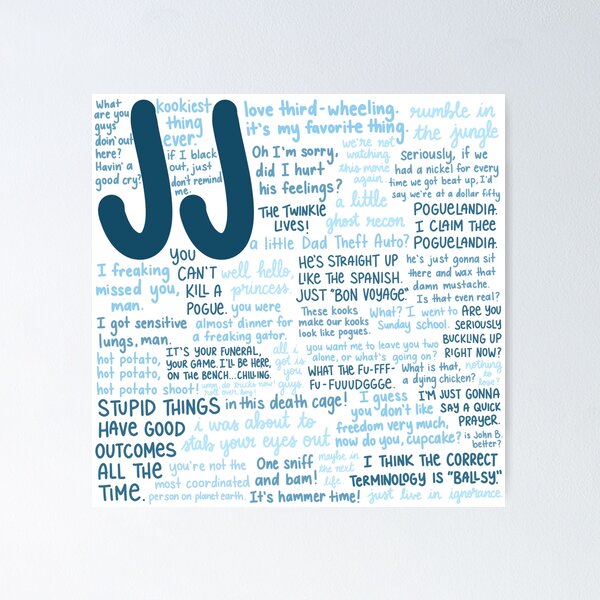 What
are you
guys
doin' out
here?
Havin' a
good cry?
JJ
kookiest
thing
ever.
if I black
out, just
don't remind
me.
love third-wheeling.
it's my favorite thing.
rumble in
the jungle
Oh I'm sorry,
did I hurt
his feelings?
we're not
watching
this movie
again
Seriously, if we
had a nickel for every
time we got beat up, I'd
say we're at a dollar fifty
THE TWINKIE
LIVES!
a little
ghost recon
POGUELANDIA.
I CLAIM THEE
POGUELANDIA.
a little Dad Theft Auto?
YOU
CAN'T
KILL A
POGUE.
I freaking
missed you,
man.
well hello,
princess.
HE'S STRAIGHT UP
LIKE THE SPANISH.
JUST "BON VOYAGE."
he's just gonna sit
there and wax that
damn mustache.
Is that even real?
you were
almost dinner for
a freaking gator.
These kooks
make our kooks
look like pogues.
What? I went to
Sunday school.
ARE YOU
SERIOUSLY
BUCKLING UP
RIGHT NOW?
I got sensitive
lungs, man.
hot potato,
hot potato,
hot potato shoot!
IT'S YOUR FUNERAL,
YOUR GAME. I'LL BE HERE,
ON THE BENCH...CHILLING.
all i
got is
you
guys.
you want me to leave you two
alone, or what's going on?
WHAT THE FU-FFF-
FU-FUUUDGGGE.
What is that,
a dying chicken?
nothing
to
lose?
STUPID THINGS
HAVE GOOD
OUTCOMES
ALL THE
TIME.
in this death cage!
I guess
you don't like
freedom very much,
now do you, cupcake?
I'M JUST GONNA
SAY A QUICK
PRAYER.
i was about to
stab your eyes out
is John B.
better?
you're not the
most coordinated
person on planet earth.
One sniff
and bam!
maybe in
the next
life
I THINK THE CORRECT
TERMINOLOGY IS "BALLSY."
It's hammer time!
just live in ignorance.